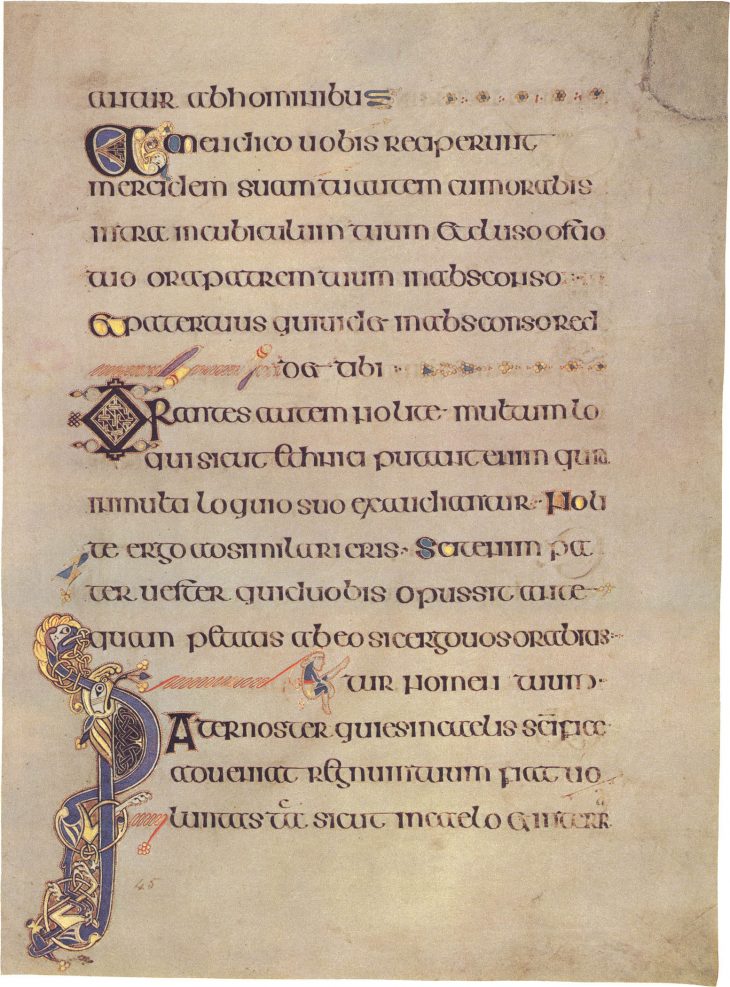 antur abhominibus
Amen dico uobis reciperunt
mercidem suam tu autem cum orabis
intra incubiculum tuum et cluso ostio
tuo ora patrem tuum inabsconso
et pater tuus qui uidet inabsconso red
det tibi
Orantes autem nolite multum lo
qui sicut ethnici putant enim quia
inmultiloquio suo exaudiantur · Noli
te ergo adsimilari eris · Scit enim pa
ter uester quid uobis opus sit ante
quam petatis ab eo sic ergo uos orabitis
tur nomen tuum ·
Pater noster qui es incaelis scifice
adueniat regnum tuum fiat uo
luntas tua sicut incaelo et interra
45